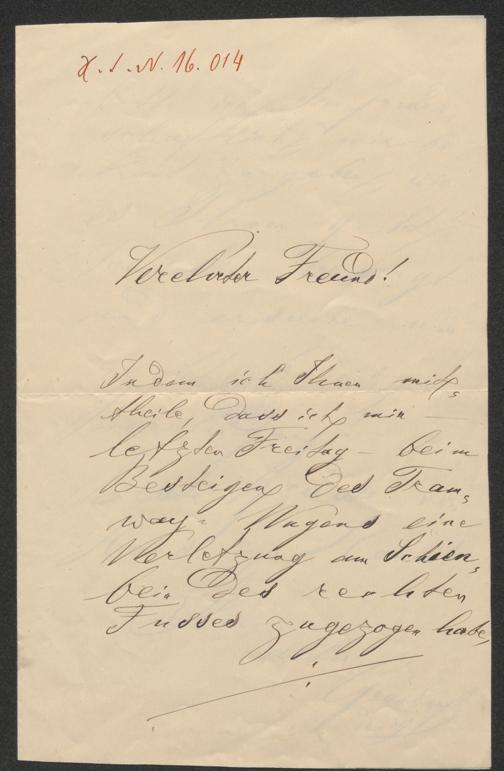 H. I. N. 16.014
Verehrter Freund!
Indem ich Ihnen mit=
theile, dass ich mir —
letzten Freitag — beim
Besteigen des Tram=
way=Wagens eine
Verletzung am Schien=
bein des rechten
Fusses zugezogen habe,
./.